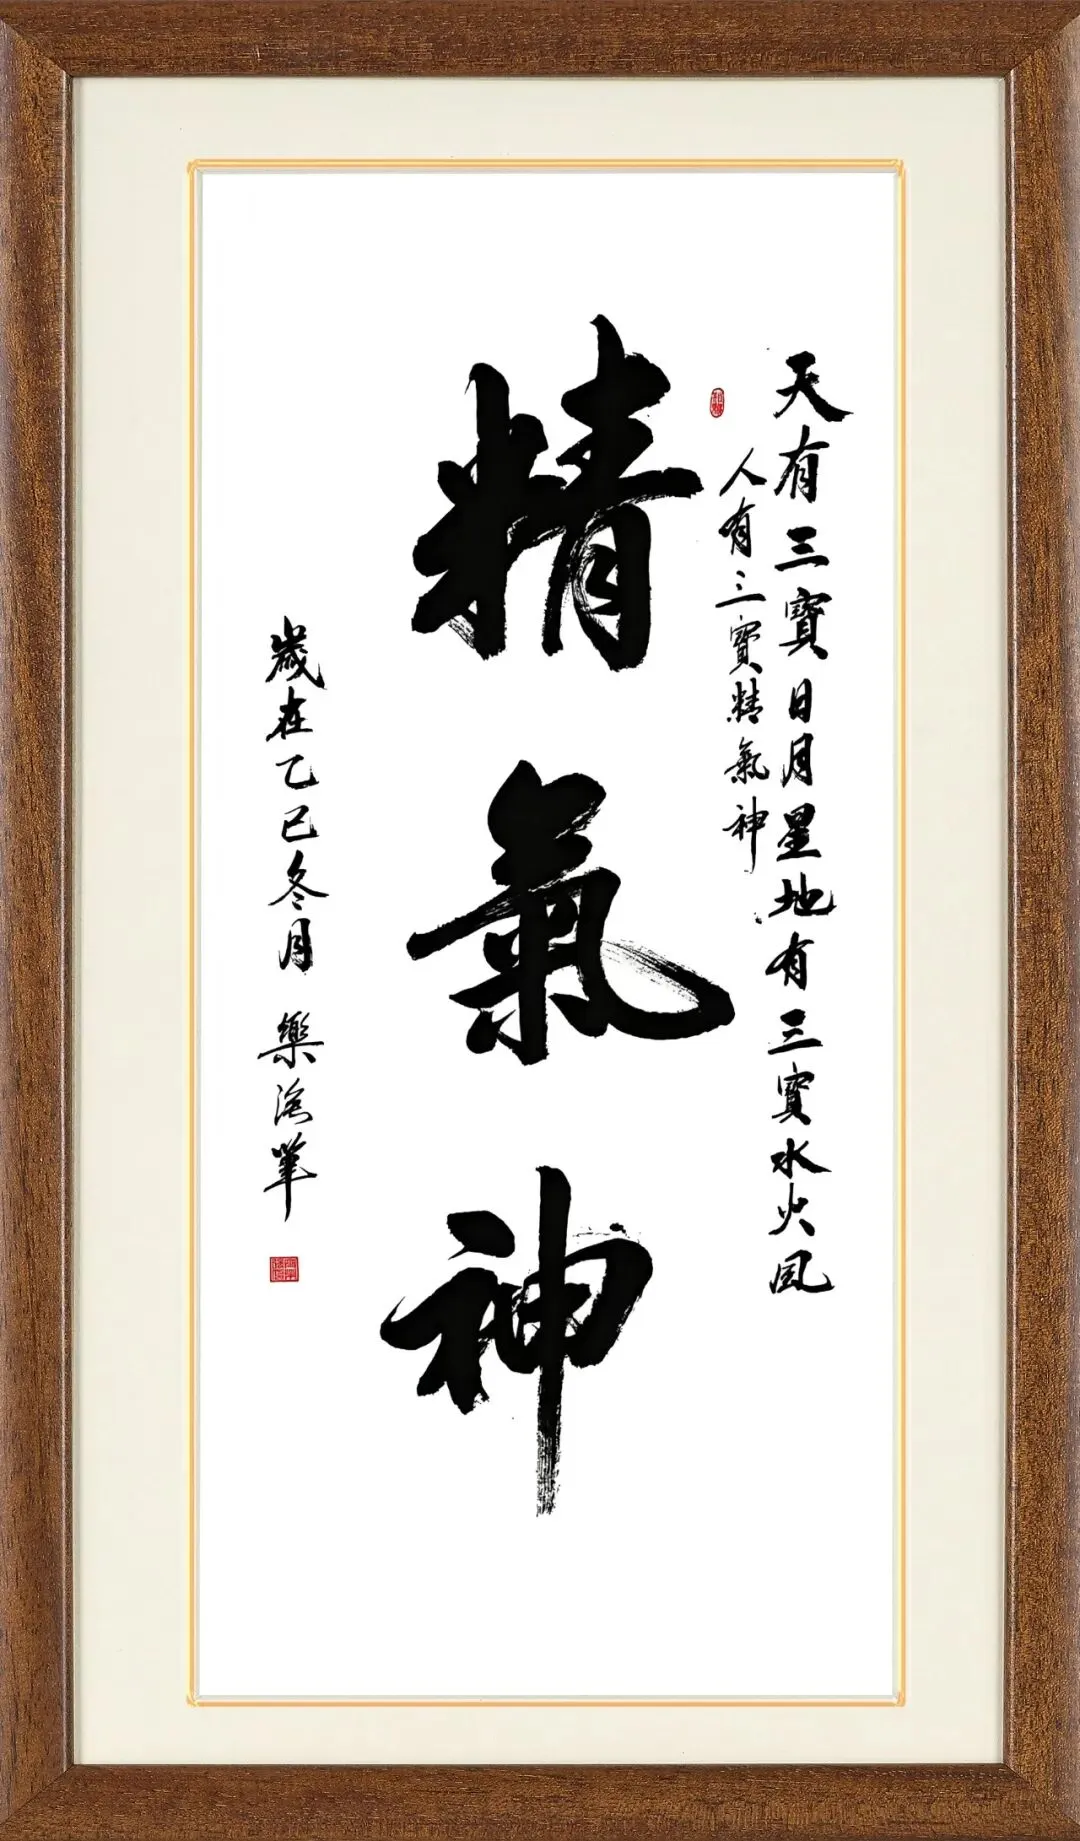 天有三寶日月星地有三寶水火風
人有三寶精氣神
精氣神
歲在乙巳冬月 樂 筆